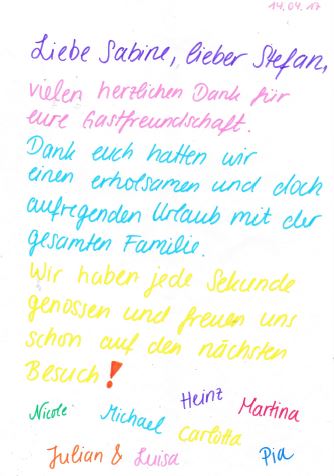 14.04.17
Liebe Sabine, lieber Stefan,
vielen herzlichen Dank für
eure Gastfreundschaft.
Dank euch hatten wir
einen erholsamen und doch
aufregenden Urlaub mit der
gesamten Familie.
Wir haben jede Sekunde
genossen und freuen uns
schon auf den nächsten
Besuch!
Nicole Michael Heinz Martina
Carlotta
Julian & Luisa Pia